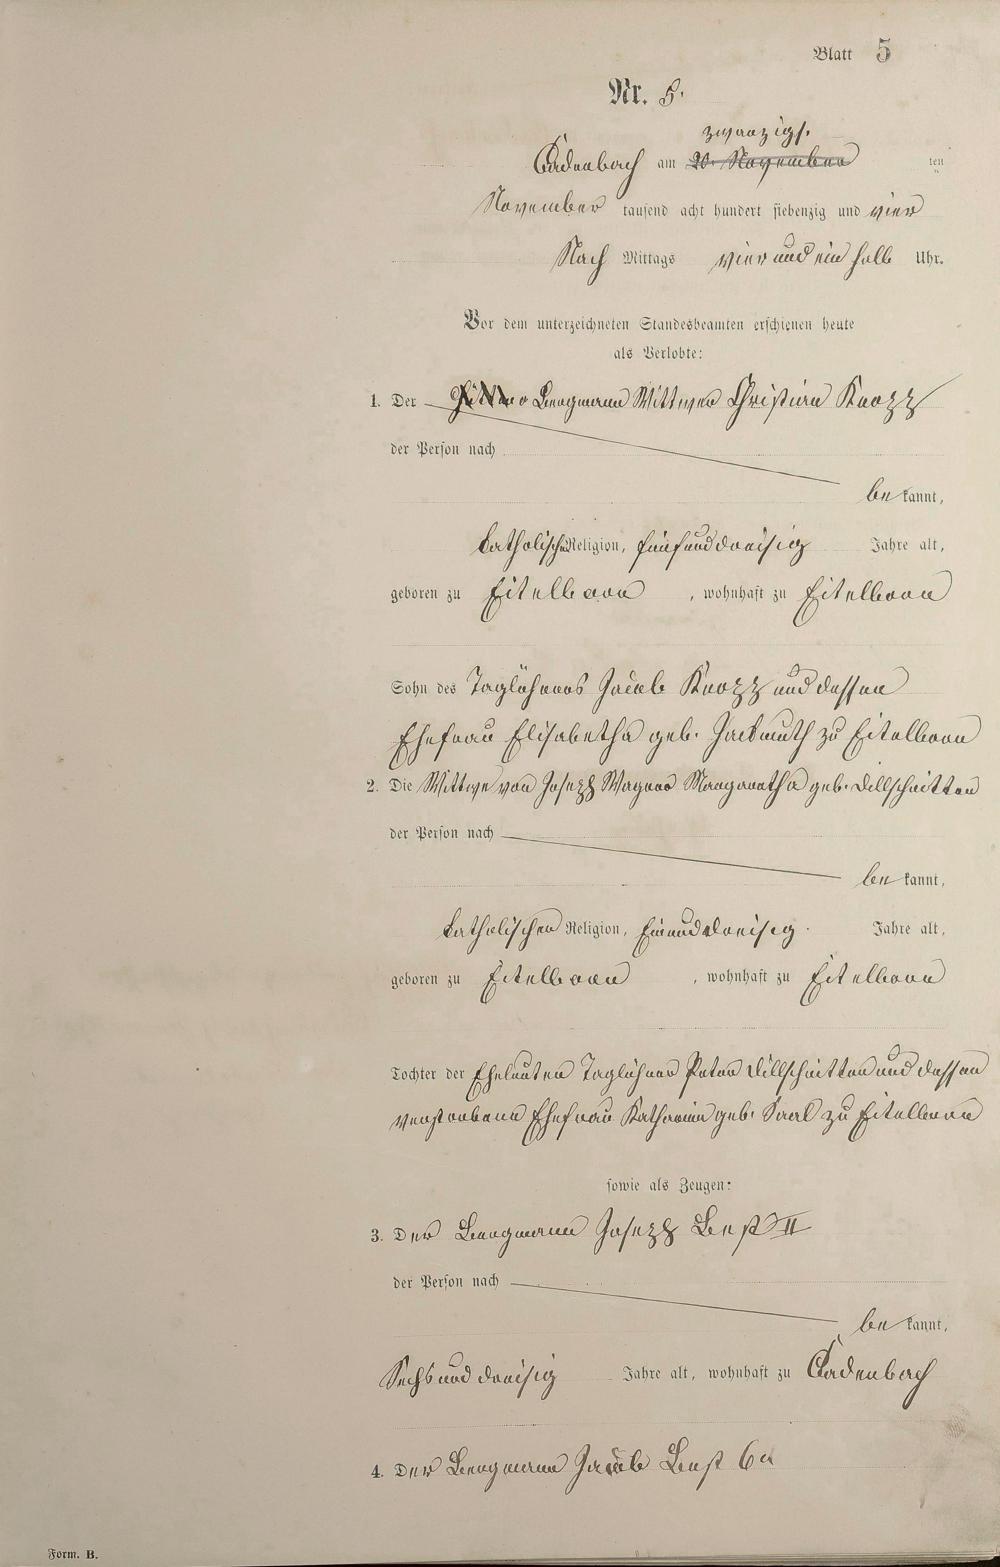 Blatt 5
Nr. 5.
zwanzigs.
Cadenbach am 20. November ten
November tausend acht hundert siebenzig und vier
Nach Mittags vier und ein halb Uhr.
Vor dem unterzeichneten Standesbeamten erschienen heute
als Verlobte:
1. Der Bergmann Wittwer Christian Knopp
der Person nach
be kannt,
katholische Religion, fünfunddreisig Jahre alt,
geboren zu Eitelborn, wohnhaft zu Eitelborn
Sohn des Taglöhners Jacob Knopp und dessen
Ehefrau Elisabetha geb. Jackmuth zu Eitelborn
2. Die Wittwe von Joseph Wagner Margaretha geb. Dillschnitter
der Person nach
be kannt,
katholischer Religion, Einunddreisig Jahre alt,
geboren zu Eitelborn, wohnhaft zu Eitelborn
Tochter der Eheleuten Taglöhner Peter Dillschnitter und dessen
verstorbene Ehefrau Katharina geb. Saal zu Eitelborn
sowie als Zeugen:
3. Der Bergmann Joseph Best II
der Person nach
be kannt,
Sechs und dreisig Jahre alt, wohnhaft zu Cadenbach
4. Der Bergmann Jacob Best 6r
Form. B.